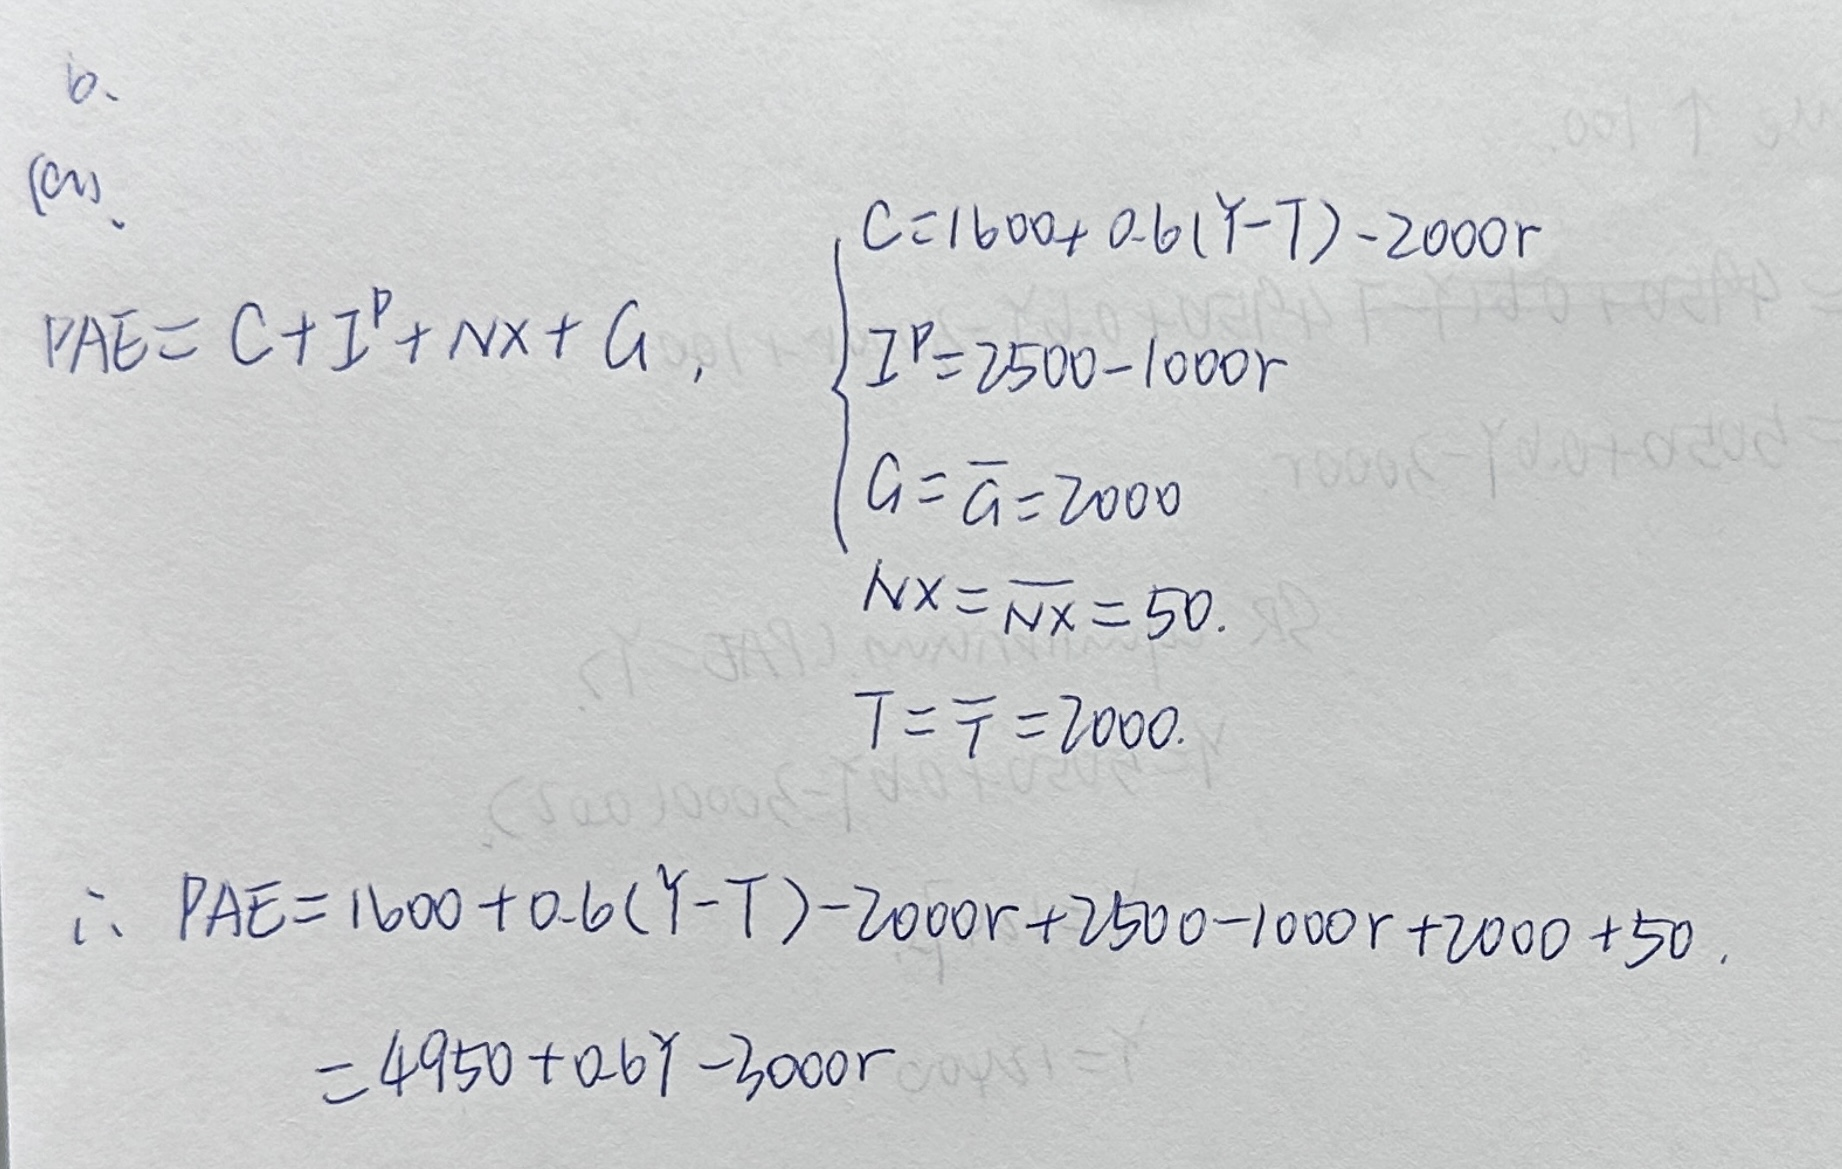 b.
(a).
C=1600+0.6(Y-T)-2000r
PAE=C+Iᴾ+NX+G,
Iᴾ=2500-1000r
G=G̅=2000
NX=N̅X̅=50.
T=T̅=2000.
∴ PAE=1600+0.6(Y-T)-2000r+2500-1000r+2000+50.
=4950+0.6Y-3000r